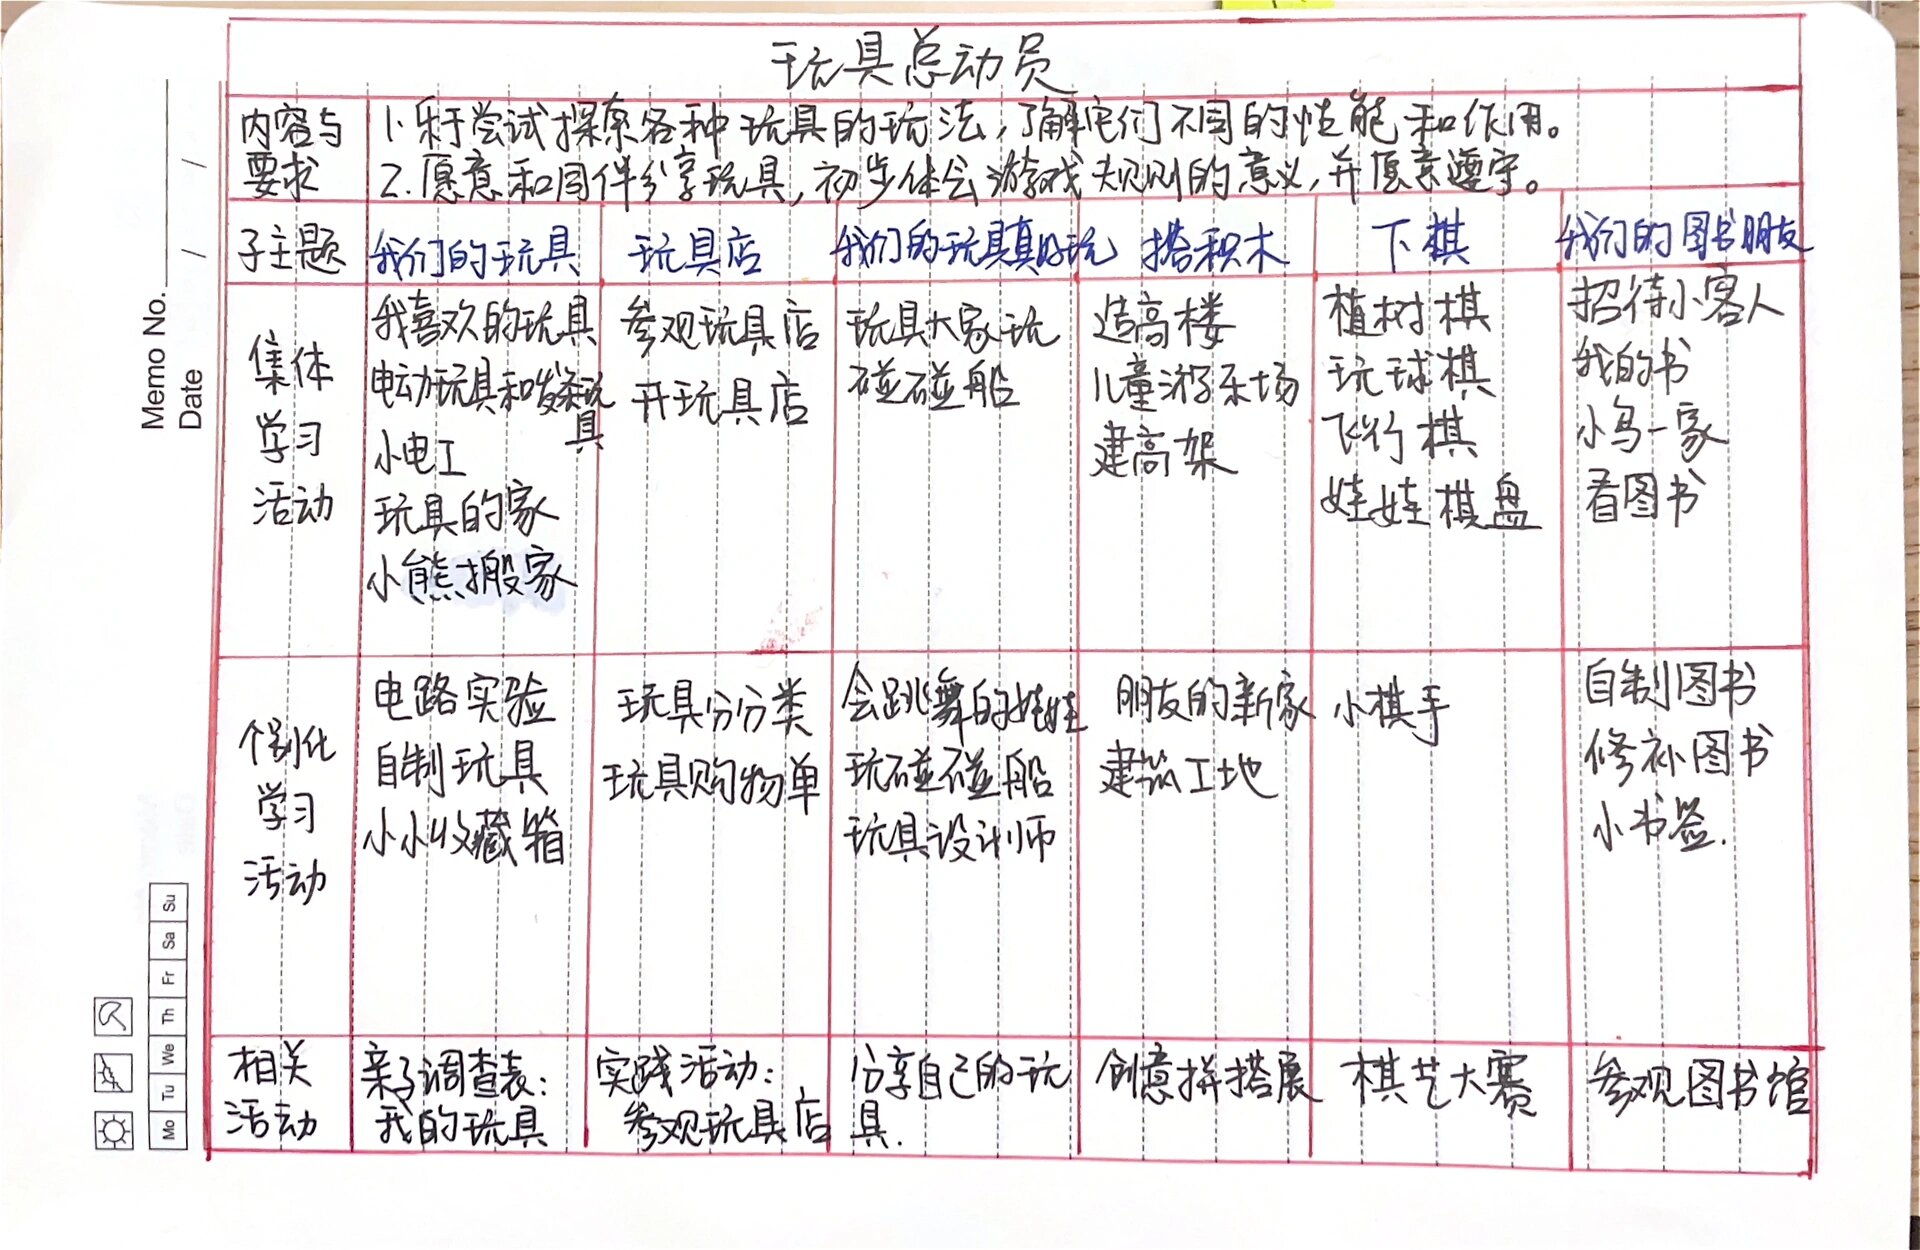 玩具总动员
内容与
要求
1.乐于尝试探索各种玩具的玩法，了解它们不同的性能和作用。
2.愿意和同伴分享玩具，初步体会游戏规则的意义，并愿意遵守。
子主题
我们的玩具
玩具店
我们的玩具真好玩
搭积木
下棋
我们的图书朋友
集体
学习
活动
我喜欢的玩具
电动玩具和发条玩
具
小电工
玩具的家
小熊搬家
参观玩具店
开玩具店
玩具大家玩
碰碰船
造高楼
儿童游乐场
建高架
植树棋
玩球棋
飞行棋
娃娃棋盘
招待小客人
我的书
小鸟一家
看图书
个别化
学习
活动
电路实验
自制玩具
小小收藏箱
玩具分分类
玩具购物单
会跳舞的娃娃
玩碰碰船
玩具设计师
朋友的新家
建筑工地
小棋手
自制图书
修补图书
小书签.
相关
活动
亲子调查表:
我的玩具
实践活动:
参观玩具店
分享自己的玩
具.
创意拼搭展
棋艺大赛
参观图书馆
Memo No.
Date / /
Mo Tu We Th Fr Sa Su